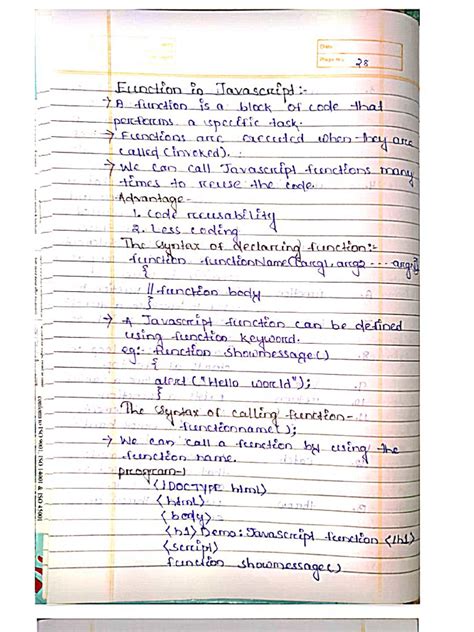 Date
Page No. 28
Function in Javascript:-
→ A function is a block of code that
performs a specific task.
→ Functions are executed when they are
called (invoked).
→ We can call Javascript functions many
times to reuse the code.
Advantage -
1. Code reusability
2. Less coding
The syntax of declaring function:-
function functionName([arg1, arg2 --- argn])
{
// function body
}
→ A Javascript function can be defined
using function keyword.
eg:- function showmessage()
{
alert ("Hello world");
}
The syntax of calling function-
functionname();
→ We can call a function by using the
function name.
program-1
<!DOCTYPE html>
<html>
<body>
<h1> Demo: Javascript function </h1>
<script>
function showmessage()